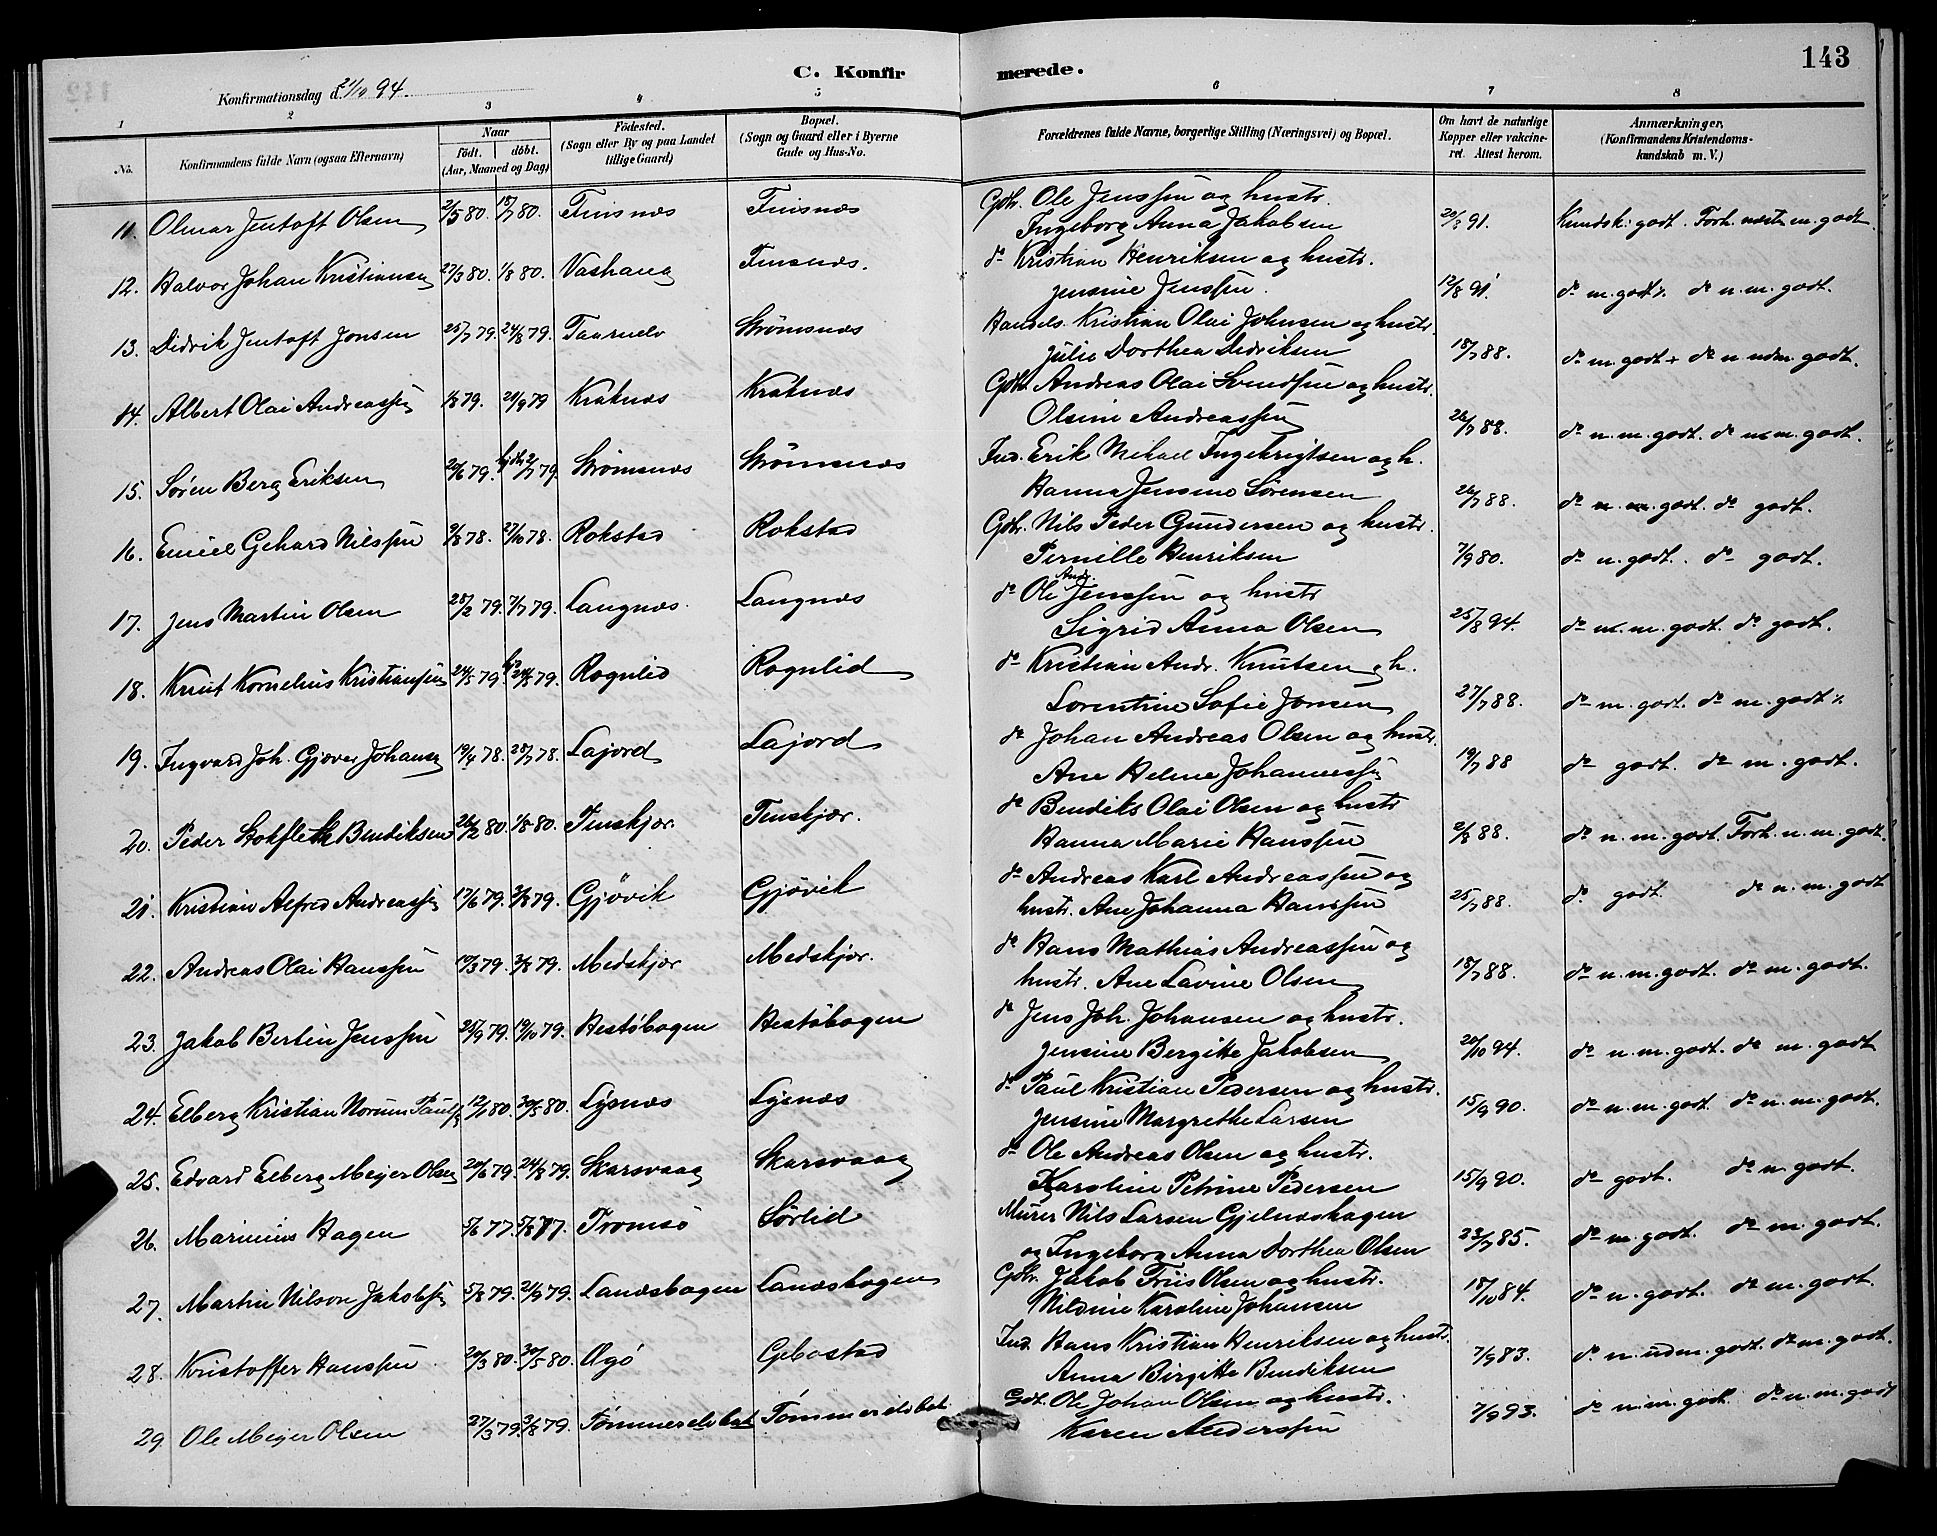 C. Konfirmerede.
143
Konfirmationsdag d. 21/10 94.
1 2 3 4 5 6 7 8
No. Konfirmandens fulde Navn (ogsaa Efternavn) Naar födt. döbt. (Aar, Maaned og Dag) Födested. (Sogn eller By og paa Landet tillige Gaard) Bopæl. (Sogn og Gaard eller i Byerne Gade og Hus-No. Forældrenes fulde Navne, borgerlige Stilling (Næringsvei) og Bopæl. Om havt de naturlige Kopper eller vakcineret. Attest herom. Anmærkninger. (Konfirmandens Kristendomskundskab m. V.)
11. Olmar Jentoft Olsen 2/5 80. 18/7 80. Finsnæs Finsnæs Gbr. Ole Jenssen og hustr. Ingeborg Anna Jakobsen 20/8 91. Kundsk. godt. Forh. næsten m. godt
12. Halvor Johan Kristiansen 27/3 80. 1/8 80. Vashaug Finsnæs. do Kristian Henriksen og hustr. Jensine Jenssen. 12/8 91. do m. godt %. do n. m. godt.
13. Didrik Jentoft Jonsen 25/7 79. 24/8 79. Taarnelv Strömsnæs Handels. Kristian Olai Johnsen og hustr. Julie Dorthea Didriksen 18/7 88. do m. godt + do n udm. godt.
14. Albert Olai Andreassen 1/8 79. 21/9 79 Kraknæs Kraknæs Gbr. Andreas Olai Svendsen og hustr. Olsine Andreassen 26/7 88. do n. m. godt. do n m. godt.
15. Sören Berg Eriksen 20/6 79. hjdb. 2/7 79. Strömsnæs Strömsnæs Ind. Erik Mikael Ingebrigtsen og h. Hanna Jensine Sörensen 26/7 88. do n. m. godt. do godt.
16. Emiel Gehard Nilssen 9/8 78. 27/10 78. Rokstad Rokstad Gbr. Nils Peder Gundersen og hustr. Pernille Henriksen 7/9 80. do n. godt. do godt.
17. Jens Martin Olsen 28/2 79. 7/7 79. Langnæs. Langnæs do Ole Andr. Jenssen og hustr Sigrid Anna Olsen 25/8 94. do m. m. godt. do godt.
18. Knut Kornelius Kristiansen 24/5 79. 24/8 79. Rognlid Rognlid do Kristian Andr. Knutsen og h. Lorentine Sofie Jonsen 27/7 88. do m. godt. do m. godt %.
19. Ingvard Joh. Gjöver Johansen 19/4 78. 28/7 78. Lajord Lajord do Johan Andreas Olsen og hustr. Ane Helene Johannessen 19/7 88 do godt. do m. godt.
20. Peder Stokfleth Bendiksen 26/2 80. 1/8 80. Finskjær. Finskjær. do Bendiks Olai Olsen og hustr Hanna Marie Hanssen 2/8 88. do n. m. godt. Forh. n. m. godt.
21. Kristian Alfred Andreassen 17/6 79. 3/8 79. Gjövik Gjövik do Andreas Karl Andreassen og hustr. Ane Johanna Hanssen 25/7 88. do godt do n. m. godt
22. Andreas Olai Hanssen 19/3 79. 3/8 79. Medskjær Medskjær. do Hans Mathias Andreassen og hustr. Ane Lavine Olsen 18/7 88. do n. m. godt. do m. godt.
23. Jakob Bertin Jenssen 25/9 79. 19/10 79. Hestöbogen Hestöbogen do Jens Joh. Johansen og hustr. Jensine Bergitte Jakobsen 20/10 94. do n. m. godt. do m. godt
24. Elberg Kristian Norum Pauls 12/1 80. 30/5 80. Lysnæs Lysnæs do Paul Kristian Pedersen og hustr. Jensine Margrethe Larsen 15/9 90. do n. m. godt do n. m. godt.
25. Edvard Elberg Meijer Olsen 20/6 79. 24/8 79. Skarsvaag Skarsvaag do Ole Andreas Olsen og hustr. Karoline Petrine Pedersen 15/9 90. do godt. do n. godt.
26. Marinius Hagen 5/6 77. 5/8 77. Tromsö Sörlid Murer Nils Larsen Gjelneshagen og Ingeborg Anna Dorthea Olsen 23/7 85. do m. godt. do m. godt.
27. Martin Nilson Jakobsen 5/8 79. 21/9 79. Landsbogen Landsbogen Gbr. Jakob Friis Olsen og hustr. Nildine Karoline Johansen 18/10 84. do n. godt. do m. godt.
28. Kristoffer Hanssen 20/3 80. 30/5 80. Ögö Gebostad Ind. Hans Kristian Henriksen og hustr. Anna Birgitte Bendiksen 7/9 83. do n. udm. godt. do m. godt.
29 Ole Meijer Olsen 27/3 79. 3/8 79. Tömmerelvbet Tömmerelvbet Gbr. Ole Johan Olsen og hustr. Karen Anderssen 7/9 93. do n. m. godt. do n. m. godt